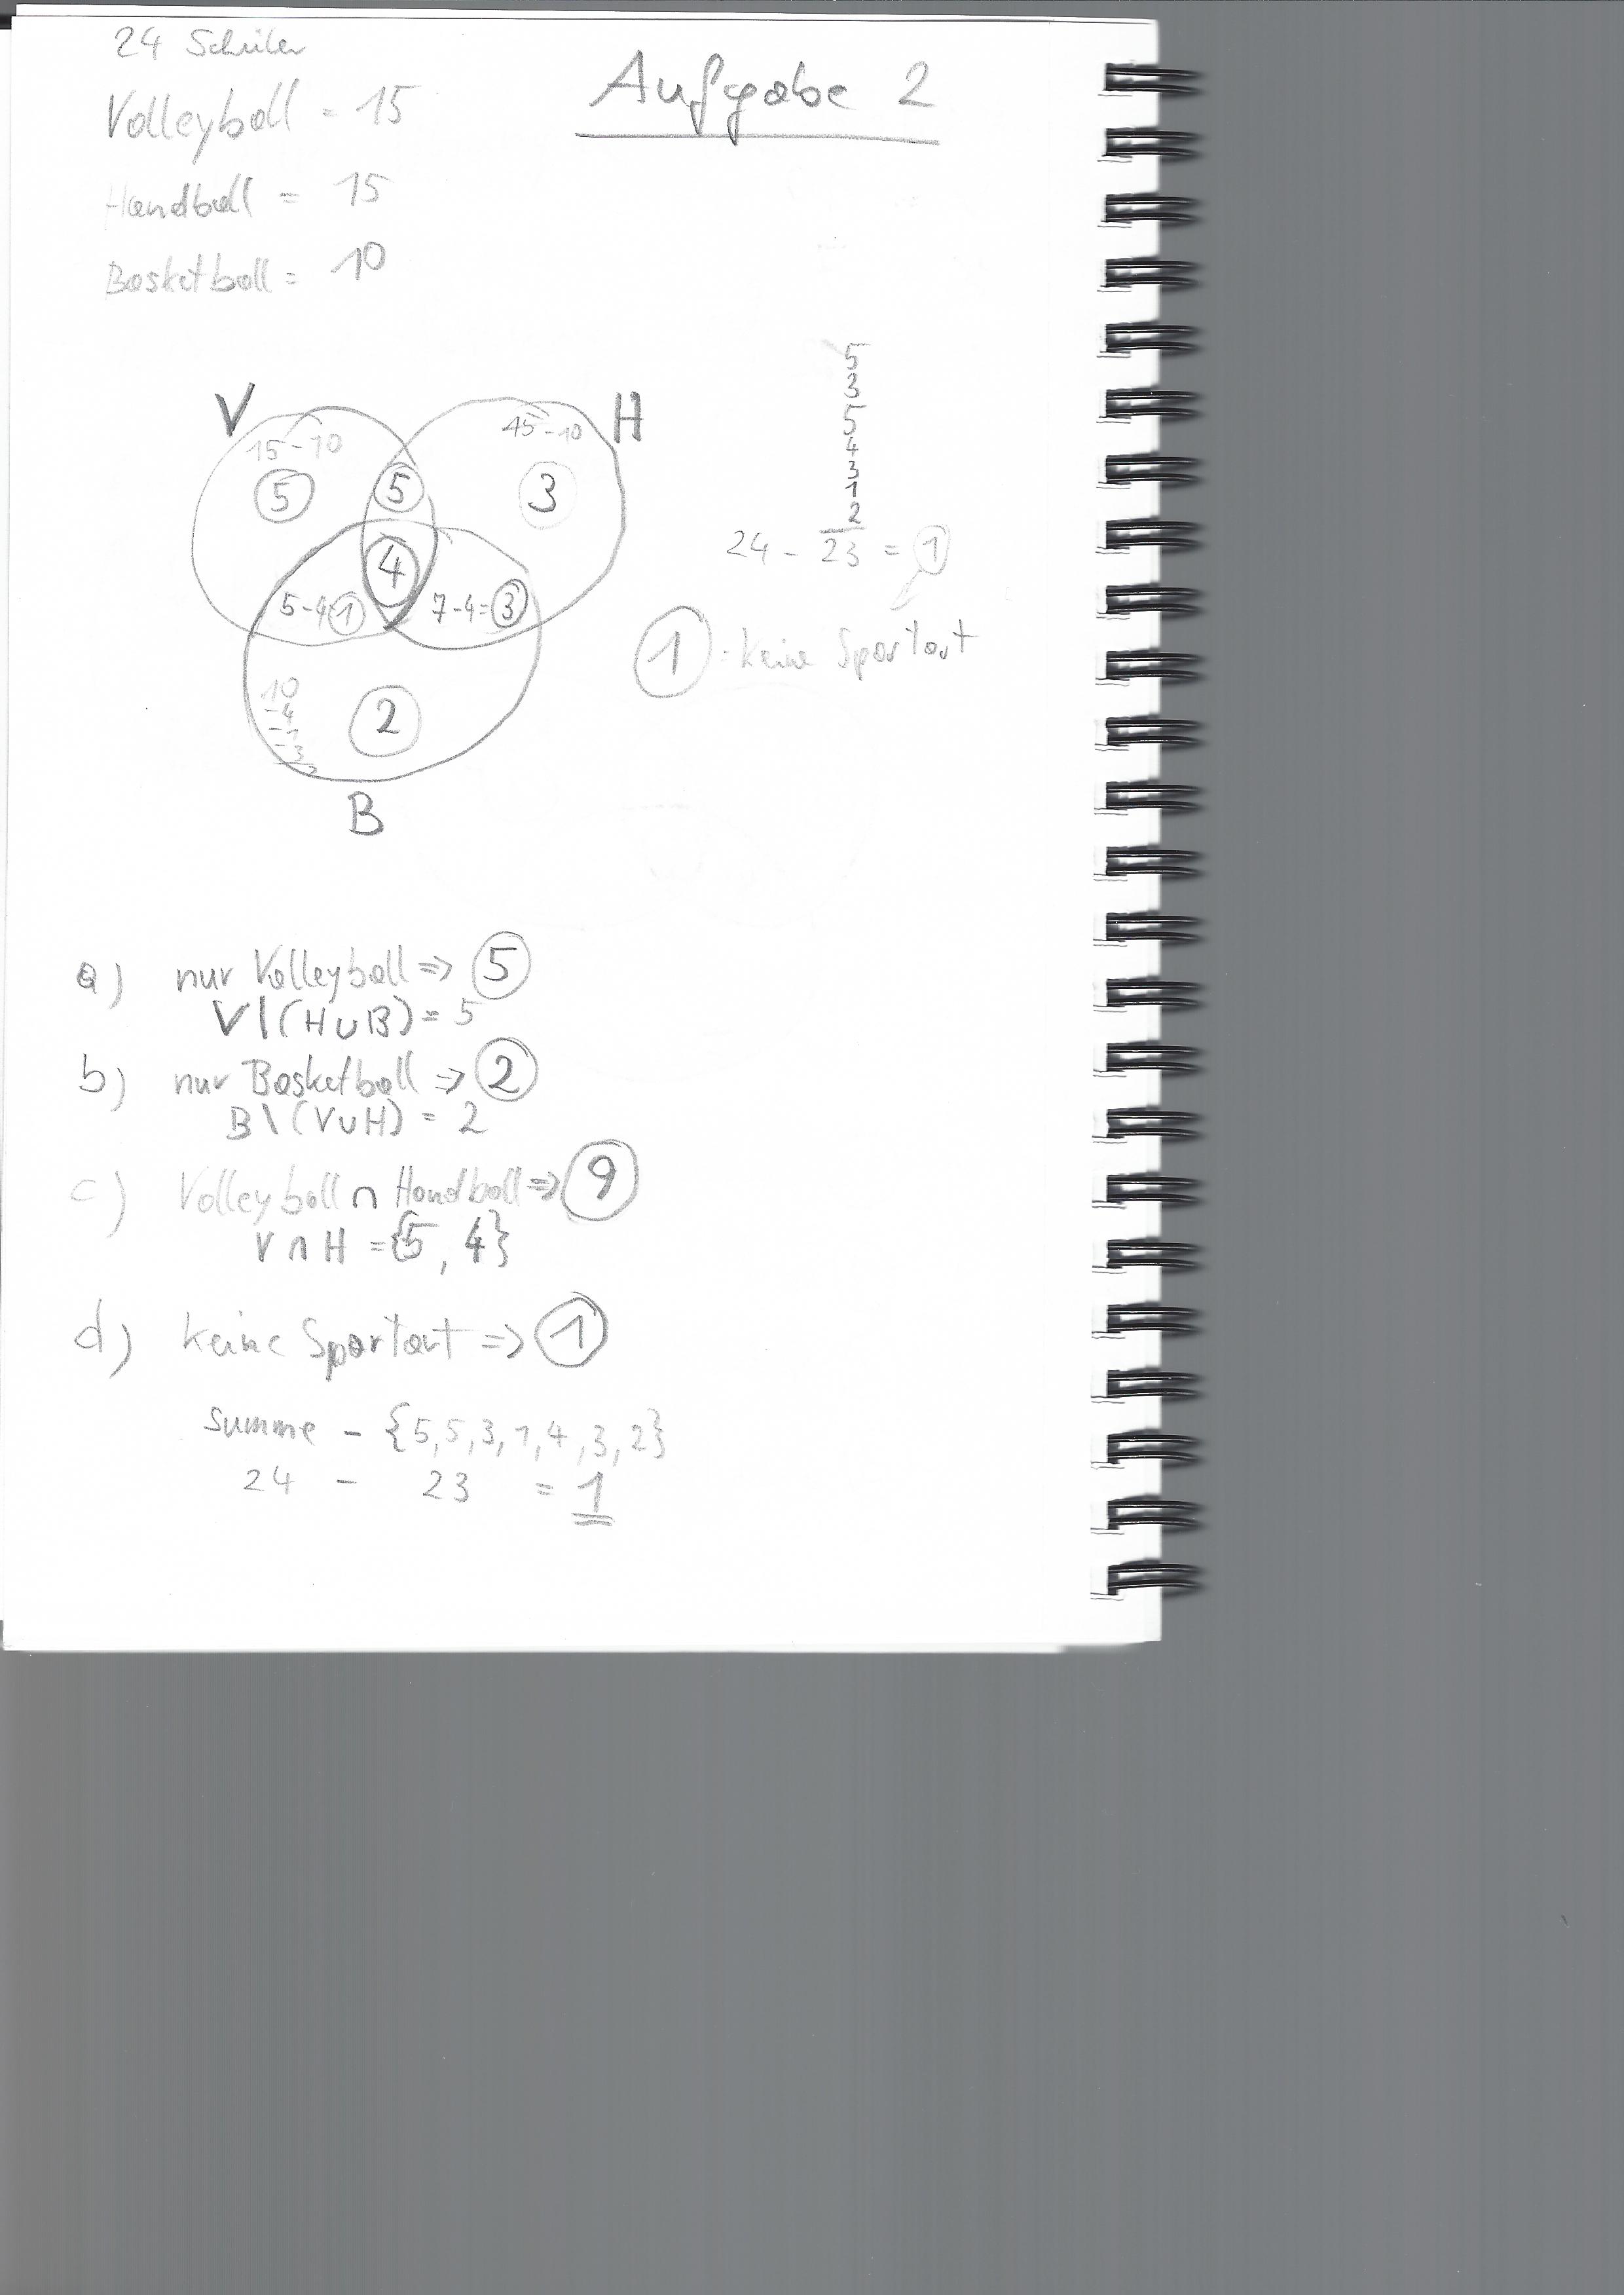 24 Schüler
Aufgabe 2
Volleyball = 15
Handball = 15
Basketball = 10
V
H
15-10
15-10
5
5
3
4
5-4 1
7-4= 3
10
-4
-1
-3
2
2
B
5
3
5
4
3
1
2
24 - 23 = 1
1 = keine Sportart
a) nur Volleyball => 5
V\(H∪B) = 5
b) nur Basketball => 2
B\(V∪H) = 2
c) Volleyball ∩ Handball => 9
V ∩ H = {5, 4}
d) keine Sportart => 1
Summe - {5,5,3,1,4,3,2}
24 - 23 = 1